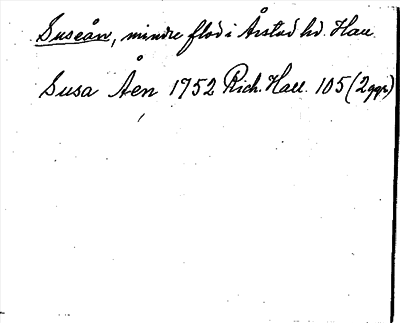 Suseån, mindre flod i Årstad hd. Hall.
Susa Åen 1752 Rich. Hall. 105 (2 ggr)